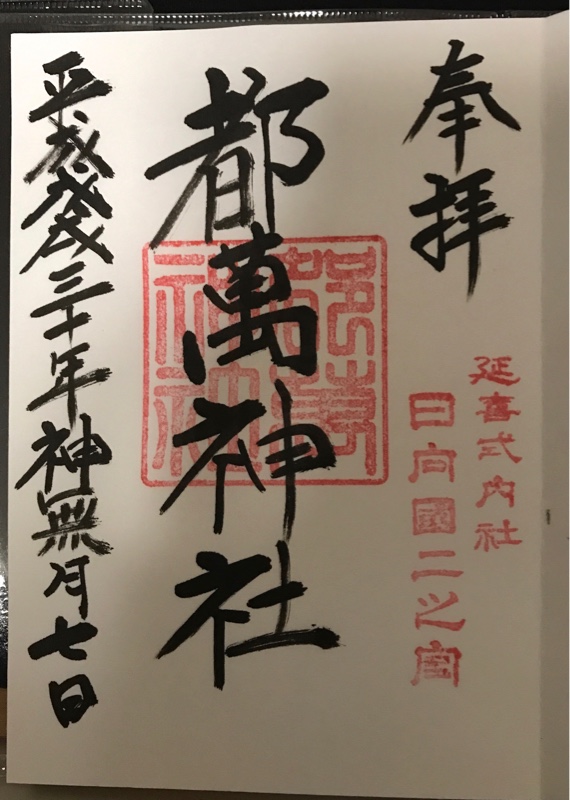 奉拝
延喜式内社
日向國二之宮
都萬神社
都萬
神社
平成戊戌三十年神無月七日